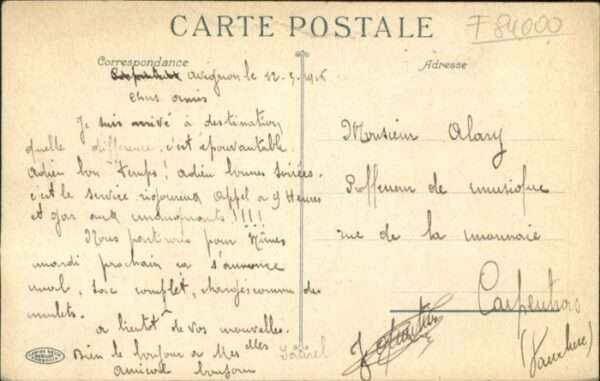 CARTE POSTALE
F 84000
Correspondance
Adresse
Avignon le 22-5-1916
Chers amis
Je suis arrivé à destination
quelle différence, c'est épouvantable.
Adieu bon temps! adieu bonnes soirées.
c'est le service rigoureux Appel à 9 Heures
et gar aux manquants!!!!
Nous partirons pour Nîmes
mardi prochain ça s'annonce
mal, sac complet, chargés comme des
mulets.
a bientôt de vos nouvelles.
Bien le bonjour a Mes elles
Amical bonjour
Monsieur Alary
Proffeseur de musique
rue de la monnaie
Carpentras
(Vaucluse)